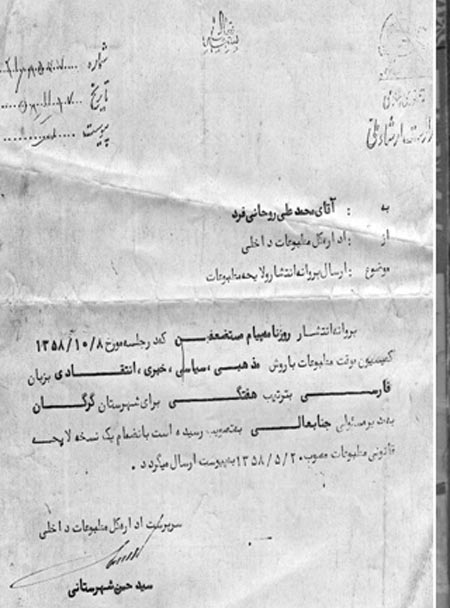 شماره
تاریخ
پیوست
جمهوری اسلامی
وزارت ارشاد ملی
به : آقای محمد علی روحانی فرد
از : اداره کل مطبوعات داخلی
موضوع : ارسال پروانه انتشار و لایحه مطبوعات
پروانه انتشار روزنامه پیام مستضعفین که در جلسه مورخ ۱۳۵۸/۱۰/۸
کمیسیون موقت مطبوعات با روش مذهبی ، سیاسی ، خبری ، انتقادی بزبان
فارسی بترتیب هفتگی برای شهرستان گرگان
به مدیر مسئولی جنابعالی به تصویب رسیده است بانضمام یک نسخه لایحه
قانونی مطبوعات مصوب ۱۳۵۸/۵/۲۰ به پیوست ارسال میگردد .
سرپرست اداره کل مطبوعات داخلی
سید حسن شهرستانی